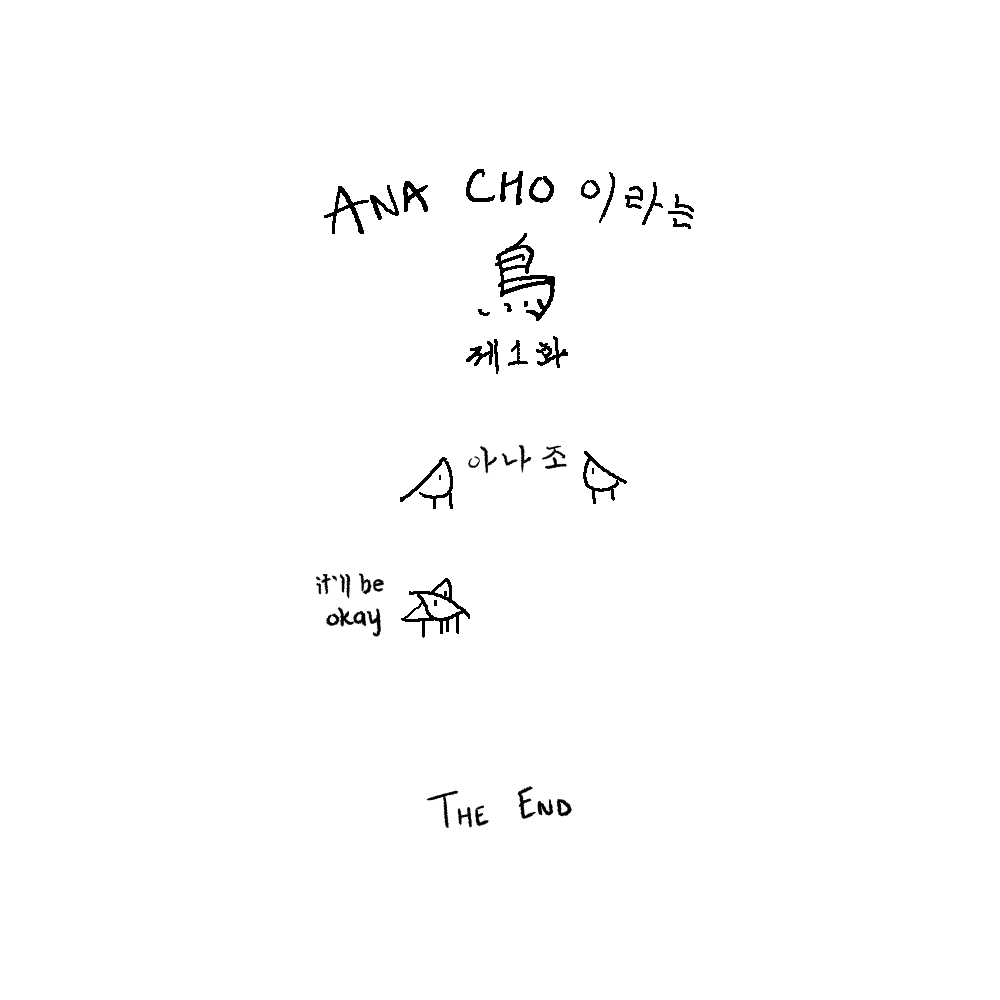 ANA CHO 이라는
鳥
제1화
아나조
it'll be
okay
THE END